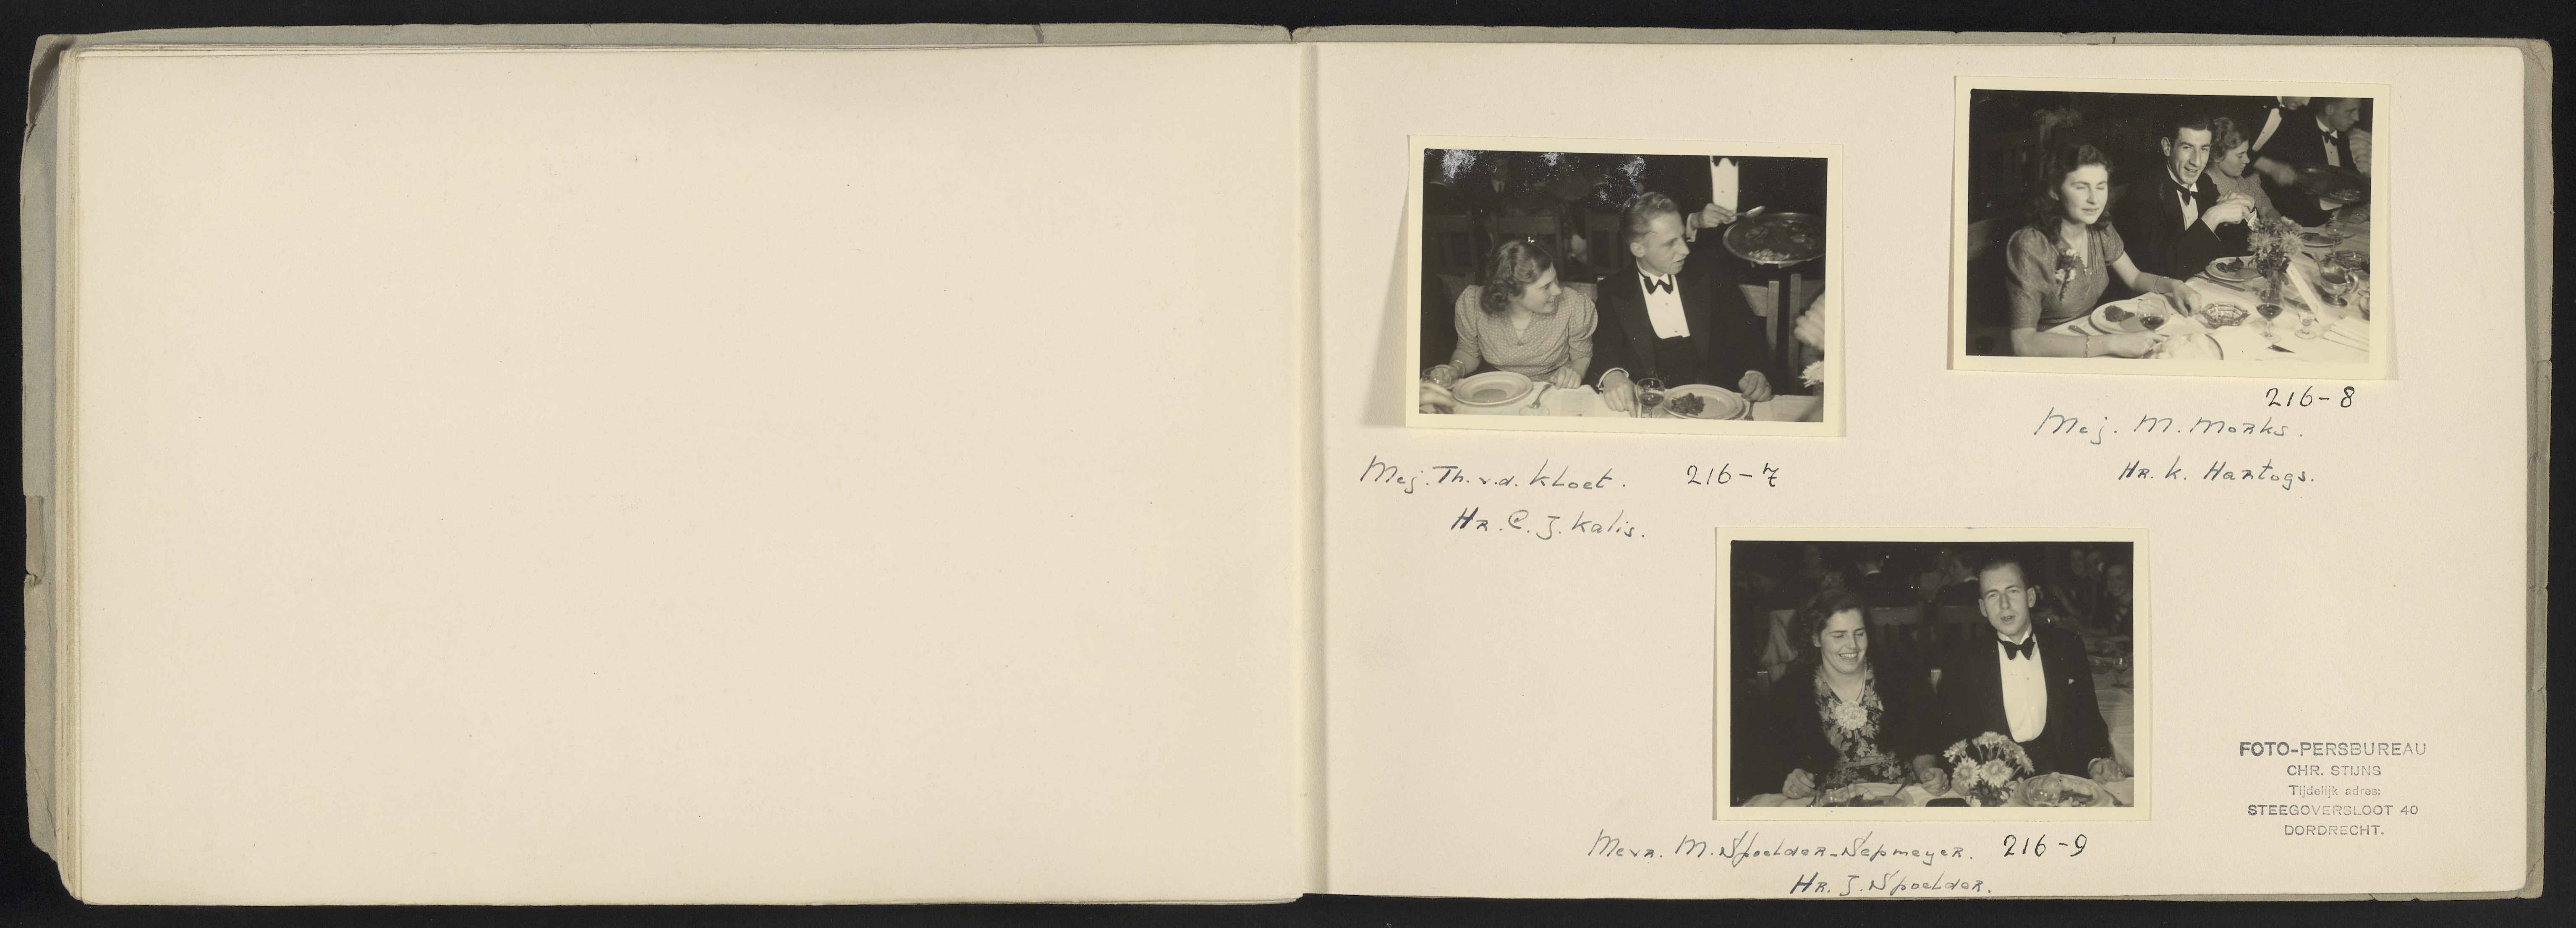 216-8
Mej. M. Monks.
Hr. K. Hartogs.
Mej. Th. v.d. Kloet. 216-7
Hr. C. J. Kalis.
Mevr. M. Spoelder-Sepmeyer. 216-9
Hr. J. Spoelder.
FOTO-PERSBUREAU
CHR. STIJNS
Tijdelijk adres:
STEEGOVERSLOOT 40
DORDRECHT.